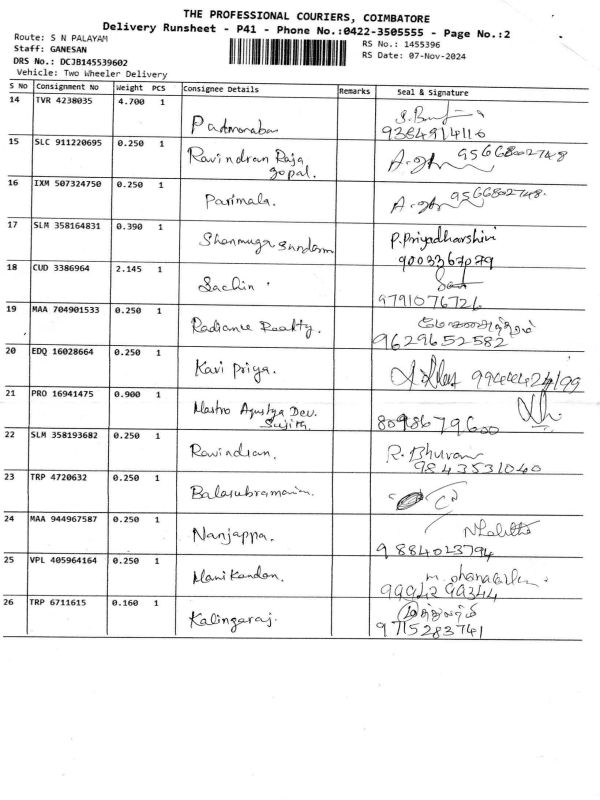 THE PROFESSIONAL COURIERS, COIMBATORE
Delivery Runsheet - P41 - Phone No.:0422-3505555 - Page No.:2
Route: S N PALAYAM
Staff: GANESAN
DRS No.: DCJB145539602
Vehicle: Two Wheeler Delivery
RS No.: 1455396
RS Date: 07-Nov-2024
S No Consignment No Weight PCS Consignee Details Remarks Seal & Signature
14 TVR 4238035 4.700 1
Padmanaban
9384914110
15 SLC 911220695 0.250 1
Ravindran Raja
gopal.
9566802748
16 IXM 507324750 0.250 1
Parimala.
9566802748.
17 SLM 358164831 0.390 1
Shanmuga Sundaram
P.Priyadharshini
9003367079
18 CUD 3386964 2.145 1
Sachin
9791076726
19 MAA 704901533 0.250 1
Radiance Realty.
9629652582
20 EDQ 16028664 0.250 1
Kavi Priya.
21 PRO 16941475 0.900 1
Mastro Agustya Dev.
Sujith.
8098679600
22 SLM 358193682 0.250 1
Ravindran.
R. Bhuvan
9843531040
23 TRP 4720632 0.250 1
Balasubramaniam.
24 MAA 944967587 0.250 1
Nanjappa.
9884023794
25 VPL 405964164 0.250 1
Manikandan.
9994299344
26 TRP 6711615 0.160 1
Kalingaraj.
9715283741